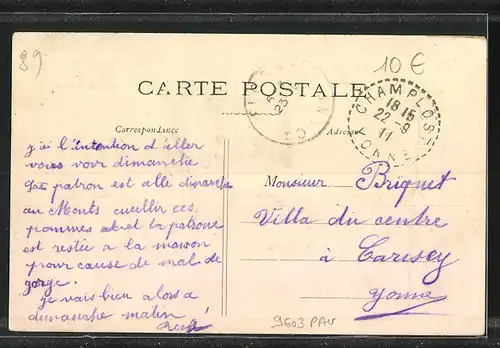 89
10 €
CARTE POSTALE
CHAMPLOST
18 15
22 - 9
11
YONNE
Correspondance
Adresse
j'ai l'intention d'aller
vous voir dimanche
patron est allé dimanche
au Monts cueillir ces
pommes et la patrone
est restée a la maison
pour cause de mal de
gorge.
je vais bien alors a
dimanche matin
Monsieur Briquet
Villa du centre
à Carisey
Yonne
9603 PAV